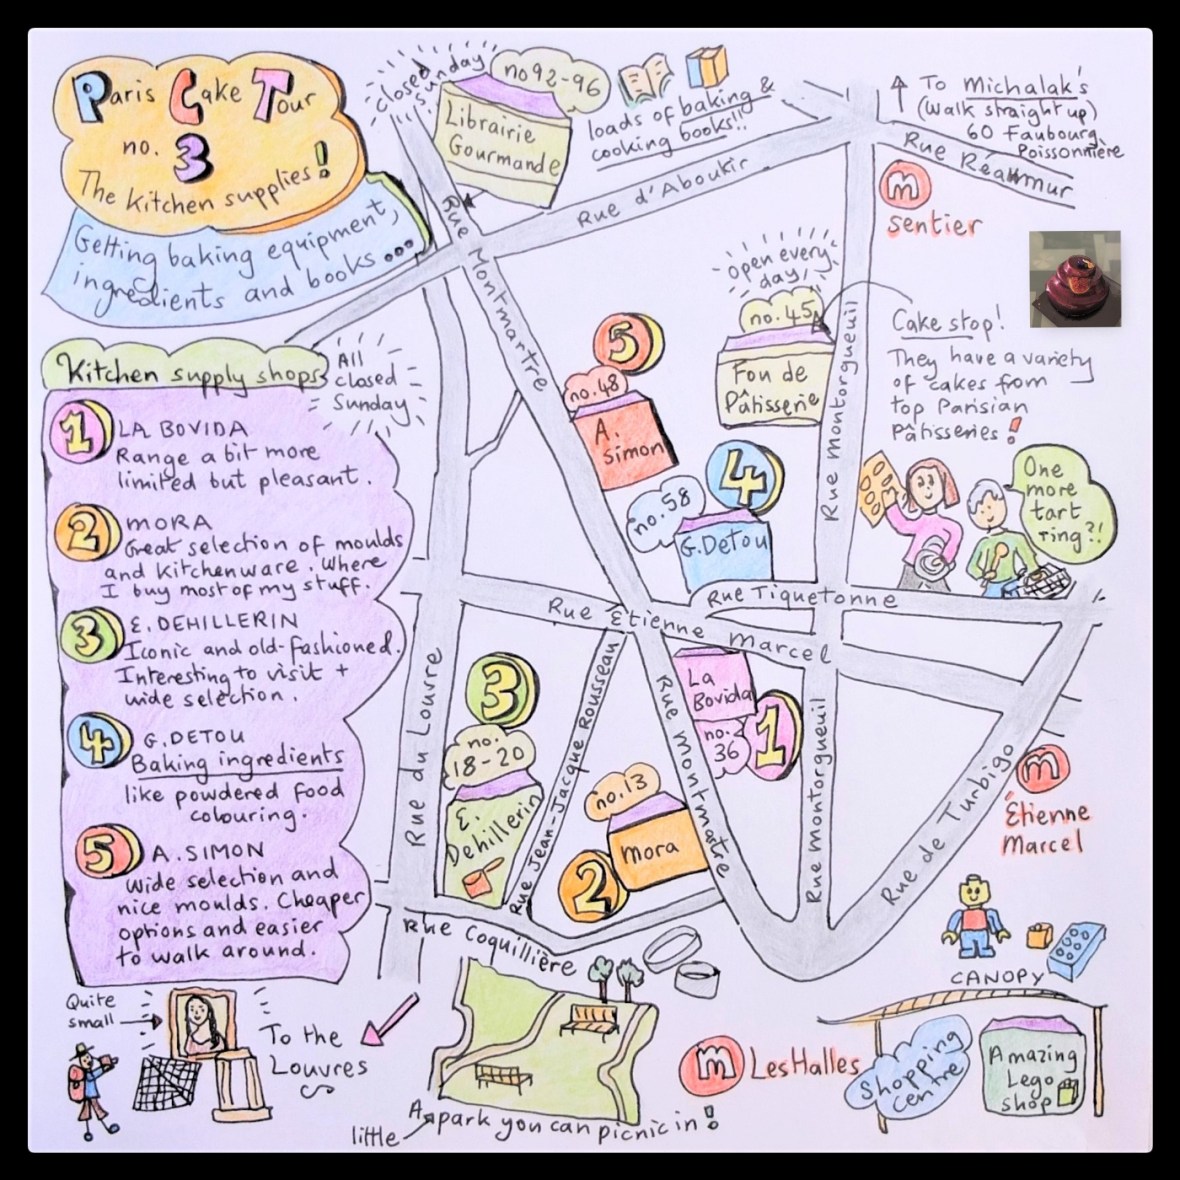 Paris Cake Tour
no. 3
The kitchen supplies!
Getting baking equipment,
ingredients and books...
closed
Sunday
no 92-96
Librairie
Gourmande
loads of baking &
cooking books!!
To Michalak's
(Walk straight up)
60 Faubourg
Poissonnière
Rue Réaumur
Rue d'Aboukir
m
Sentier
Rue Montmartre
Open every
day!
no. 45
Fou de
Pâtisserie
Rue Montorgueuil
Cake stop!
They have a variety
of cakes from
top Parisian
Pâtisseries!
One
more
tart
ring?!
5
no. 48
A.
Simon
4
no. 58
G.Detou
Kitchen supply shops
All
closed
Sunday
1 LA BOVIDA
Range a bit more
limited but pleasant.
2 MORA
Great selection of moulds
and kitchenware. Where
I buy most of my stuff.
3 E. DEHILLERIN
Iconic and old-fashioned.
Interesting to visit +
wide selection.
4 G. DETOU
Baking ingredients
like powdered food
colouring.
5 A. SIMON
Wide selection and
nice moulds. Cheaper
options and easier
to walk around.
Rue Tiquetonne
Rue Étienne Marcel
Rue du Louvre
3
no.
18-20
E.
Dehillerin
Rue Jean-Jacque Rousseau
La
Bovida
no.
36
1
Rue Montmartre
no. 13
Mora
2
Rue Montorgueuil
Rue de Turbigo
m
Étienne
Marcel
Rue Coquillière
Quite
small
To the
Louvres
A park you can picnic in!
little
m Les Halles
CANOPY
Shopping
centre
Amazing
Lego
shop